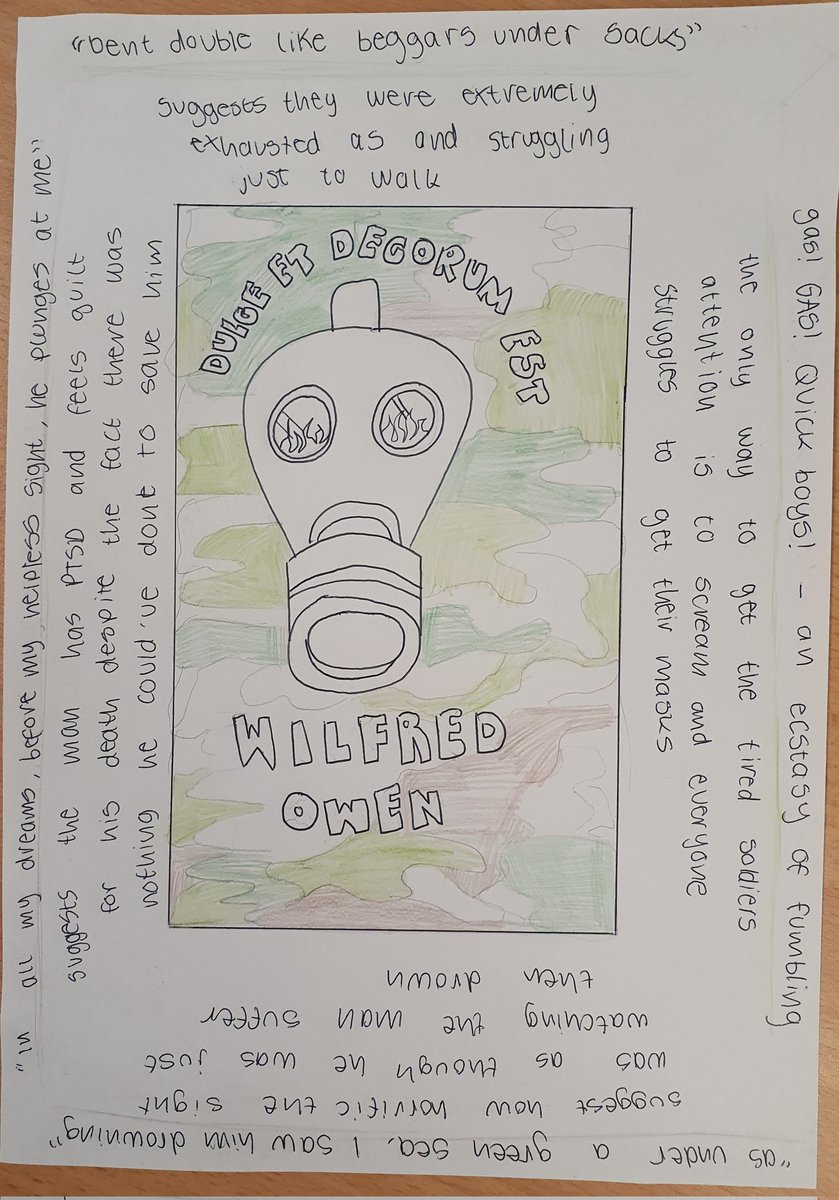 "Bent double like beggars under sacks"
suggests they were extremely
exhausted as and struggling
just to walk
gas! GAS! Quick boys! - an ecstasy of fumbling
the only way to get the tired soldiers
attention is to scream and everyone
struggles to get their masks
"as under a green sea, I saw him drowning"
suggest how horrific the sight
was as though he was just
watching the man suffer
then drown
"In all my dreams, before my helpless sight, he plunges at me"
suggests the man has PTSD and feels guilt
for his death despite the fact there was
nothing he could've dont to save him
DULCE ET DECORUM EST
WILFRED
OWEN